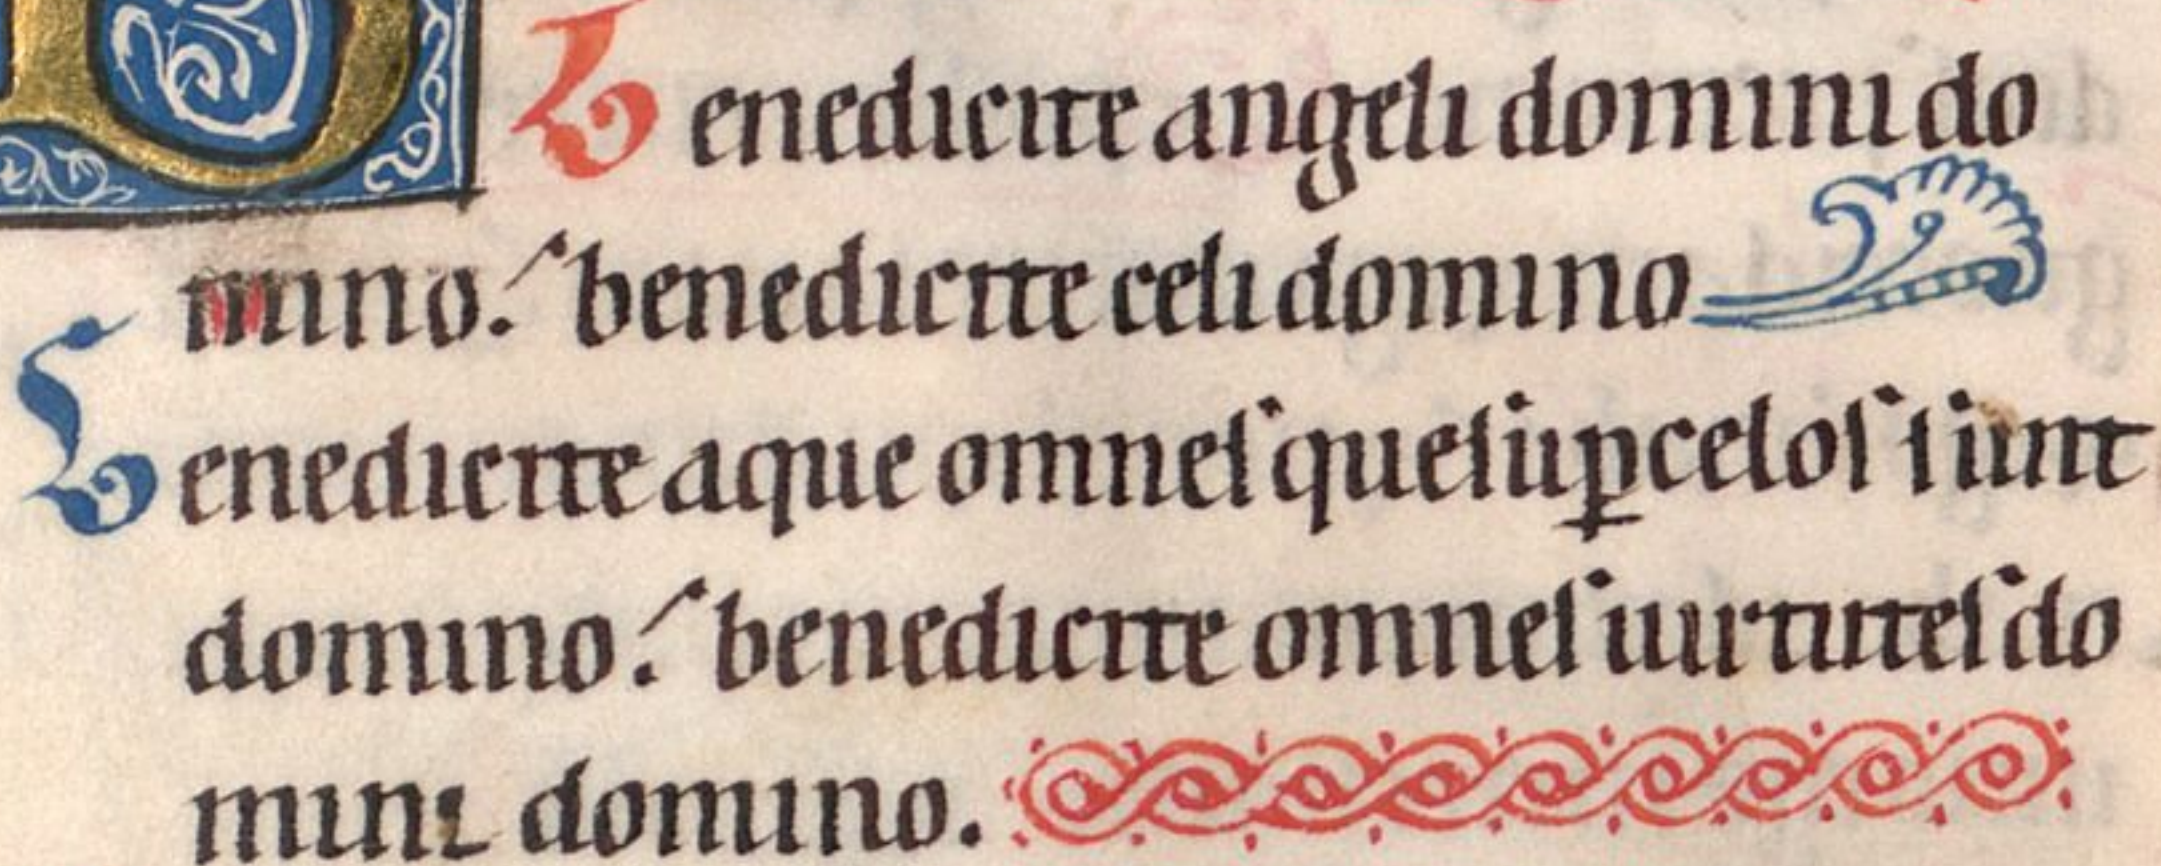 Benedicite angeli domini do
mino. benedicite celi domino
Benedicite aque omnes que sup̱ celos sunt
domino. benedicite omnes uirtutes do
mini domino.